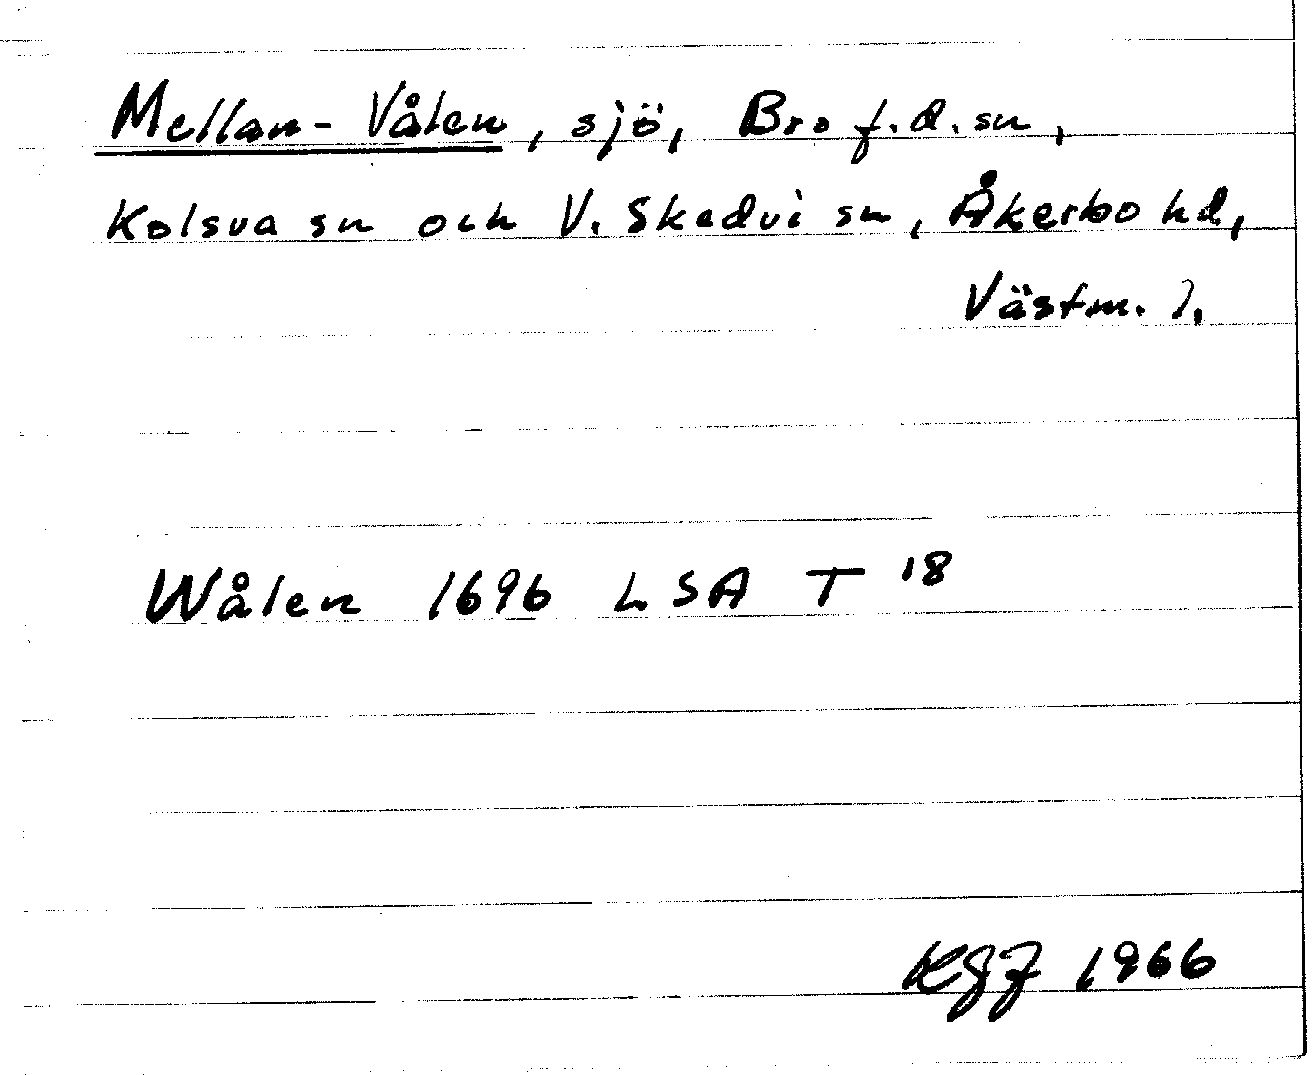 Mellan-Vålen, sjö, Bro f.d. sn,
Kolsva sn och V. Skedvi sn, Åkerbo hd,
Västm. l.
Wålen 1696 LSA T 18
1966